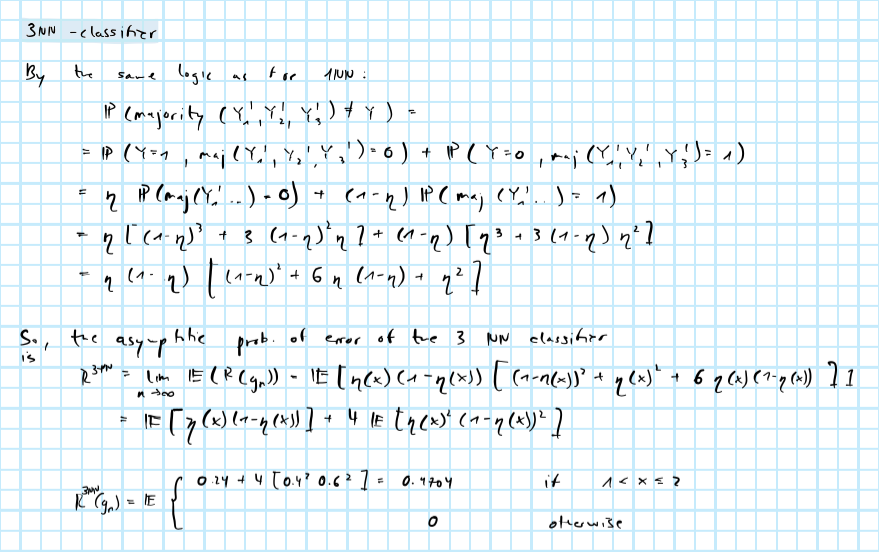 3NN - classifier
By the same logic as for 1NN:
ℙ (majority (Y₁', Y₂', Y₃') ≠ Y) =
= ℙ (Y=1, maj (Y₁', Y₂', Y₃') = 0) + ℙ (Y=0, maj (Y₁', Y₂', Y₃') = 1)
= η ℙ (maj (Y₁' ..) = 0) + (1-η) ℙ (maj (Y₁' ...) = 1)
= η [(1-η)³ + 3 (1-η)² η] + (1-η) [η³ + 3 (1-η) η²]
= η (1-η) [(1-η)² + 6 η (1-η) + η²]
So, the asymptotic prob. of error of the 3 NN classifier
is
R³ᴺᴺ = lim n→∞ 𝔼 (R(gₙ)) = 𝔼 [η(x) (1-η(x)) [(1-η(x))² + η(x)² + 6 η(x) (1-η(x)) ] ]
= 𝔼 [η(x) (1-η(x))] + 4 𝔼 [η(x)² (1-η(x))²]
R³ᴺᴺ(gₙ) = 𝔼 { 0.24 + 4 [0.4² 0.6²] = 0.4704 if 1 < x ≤ 2
0 otherwise